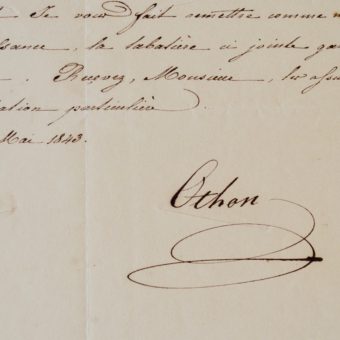 Je vous fait remettre comme
la tabatière ci jointe
Recevez, Monsieur, les
particulière.
Mai 1843.
Othon